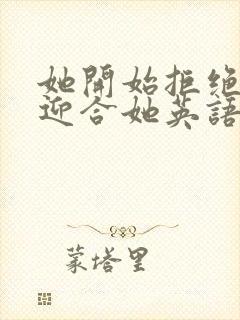 她開始拒絕
迎合她英語
蒙塔里